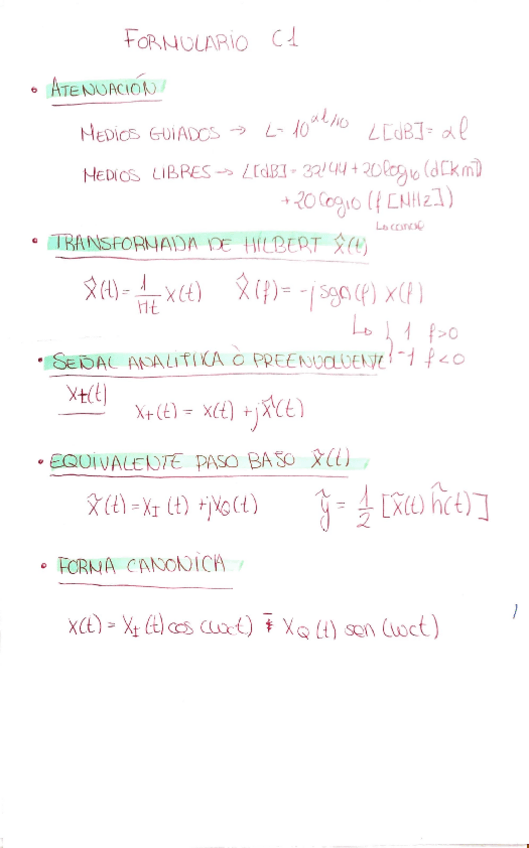 FORMULARIO C1
• ATENUACIÓN
MEDIOS GUIADOS → L= 10^αl/10 L[dB]= αl
MEDIOS LIBRES → L[dB]= 32'44 + 20log10 (d[km])
+ 20log10 (f [MHz])
• TRANSFORMADA DE HILBERT X̂(t)
X̂(t)= 1/πt X(t) X̂(f)= -j sgn(f) X(f)
↳ { 1 f>0
-1 f<0
• SEÑAL ANALITIKA O PREENVOLVENTE
X+(t)
X+(t) = x(t) + jX̂(t)
• EQUIVALENTE PASO BASO X̃(t)
X̃(t) = XI (t) + jXQ(t) ỹ = 1/2 [x̃(t) h̃(t)]
• FORMA CANONICA
X(t) = XI (t) cos (wct) - XQ (t) sen (wct)